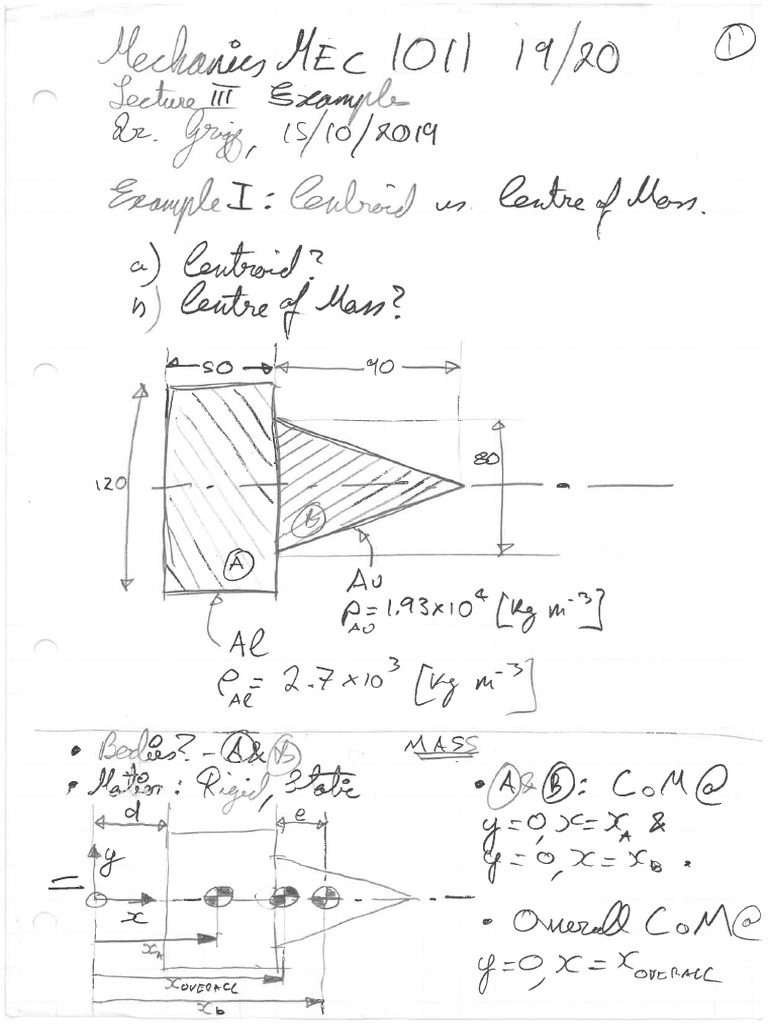 Mechanics MEC 1011 19/20
①
Lecture III Example
Dr. Grigg, 15/10/2019
Example I: Centroid vs. Centre of Mass.
a) Centroid?
b) Centre of Mass?
50 90
120
80
A
B
Au
ρAu = 1.93×10⁴ [kg m⁻³]
Al
ρAl = 2.7×10³ [kg m⁻³]
• Bodies? - A & B
MASS
• Motion: Rigid, Static
• A & B: CoM @
y=0, x=xA &
y=0, x=xb.
d e
y
=
x
xA
• Overall CoM @
y=0, x=xOVERALL
xOVERALL
xb